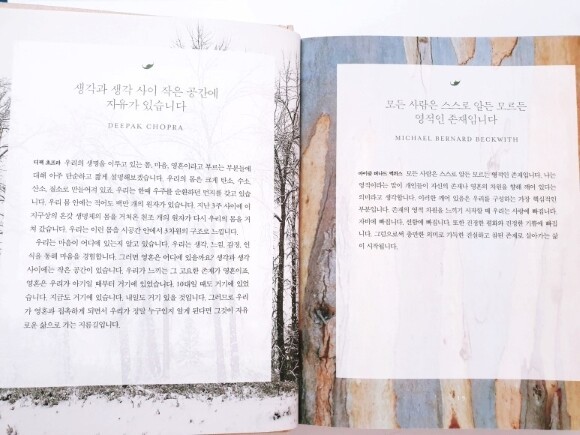 생각과 생각 사이 작은 공간에
자유가 있습니다
DEEPAK CHOPRA
디팩 초프라 우리의 생명을 이루고 있는 몸, 마음, 영혼이라고 부르는 부분들에
대해 아주 단순하고 짧게 설명해보겠습니다. 우리의 몸은 크게 탄소, 수소,
산소, 질소로 만들어져 있죠. 우리는 한때 우주를 순환하던 먼지를 갖고 있습
니다. 우리 몸 안에는 적어도 백만 개의 원자가 있습니다. 지난 3주 사이에 이
지구상의 온갖 생명체의 몸을 거쳐온 천조 개의 원자가 다시 우리의 몸을 거
쳐 갔습니다. 우리는 이런 물을 시공간 안에서 3차원의 구조로 느낍니다.
우리는 마음이 어디에 있는지 알고 있습니다. 우리는 생각, 느낌, 감정, 인
식을 통해 마음을 경험합니다. 그러면 영혼은 어디에 있을까요? 생각과 생각
사이에는 작은 공간이 있습니다. 우리가 느끼는 그 고요한 존재가 영혼이죠.
영혼은 우리가 아기일 때부터 거기에 있었습니다. 10대일 때도 거기에 있었
습니다. 지금도 거기에 있습니다. 내일도 거기 있을 것입니다. 그러므로 우리
가 영혼과 접촉하게 되면서 우리가 정말 누구인지 알게 된다면 그것이 자유
로운 삶으로 가는 지름길입니다.
모든 사람은 스스로 알든 모르든
영적인 존재입니다
MICHAEL BERNARD BECKWITH
마이클 버나드 백위스 모든 사람은 스스로 알든 모르든 영적인 존재입니다. 나는
영적이라는 말이 개인들이 자신의 존재나 영혼의 차원을 향해 깨어 있다는
의미라고 생각합니다. 이러한 깨어 있음은 우리를 구성하는 가장 핵심적인
부분입니다. 존재의 영적 차원을 느끼기 시작할 때 우리는 사랑에 빠집니다.
자비에 빠집니다. 선함에 빠집니다. 또한 진정한 평화와 진정한 기쁨에 빠집
니다. 그럼으로써 충만한 의미로 가득한 건설하고 심원 존재로 살아가는 삶
이 시작됩니다.